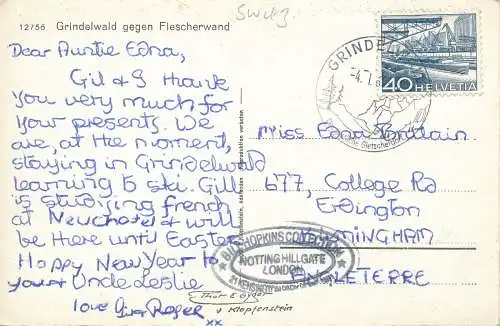 12756 Grindelwald gegen Fiescherwand
SW43
Dear Auntie Edna,
Gill & I thank
you very much for
your presents. We
are, at the moment,
staying in Grindelwald
learning to ski. Gill
is studying french
at Neuchatel & will
be there until Easter.
Happy New Year to
you & Uncle Leslie
love Roger
xx
GRINDELW
-4.1.6
40 HELVETIA
Miss Edna
677, College Rd
Erdington
BIRMINGHAM
ANGLETERRE
HOPKINS COLLECTION
NOTTING HILL GATE
LONDON
Thor E Gyger
v Klopfenstein